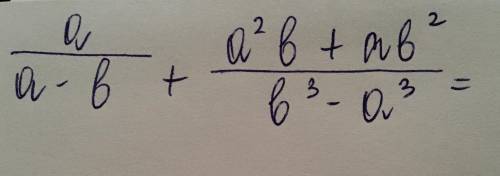 a/(a - b) + (a²b + ab²)/(b³ - a³) =